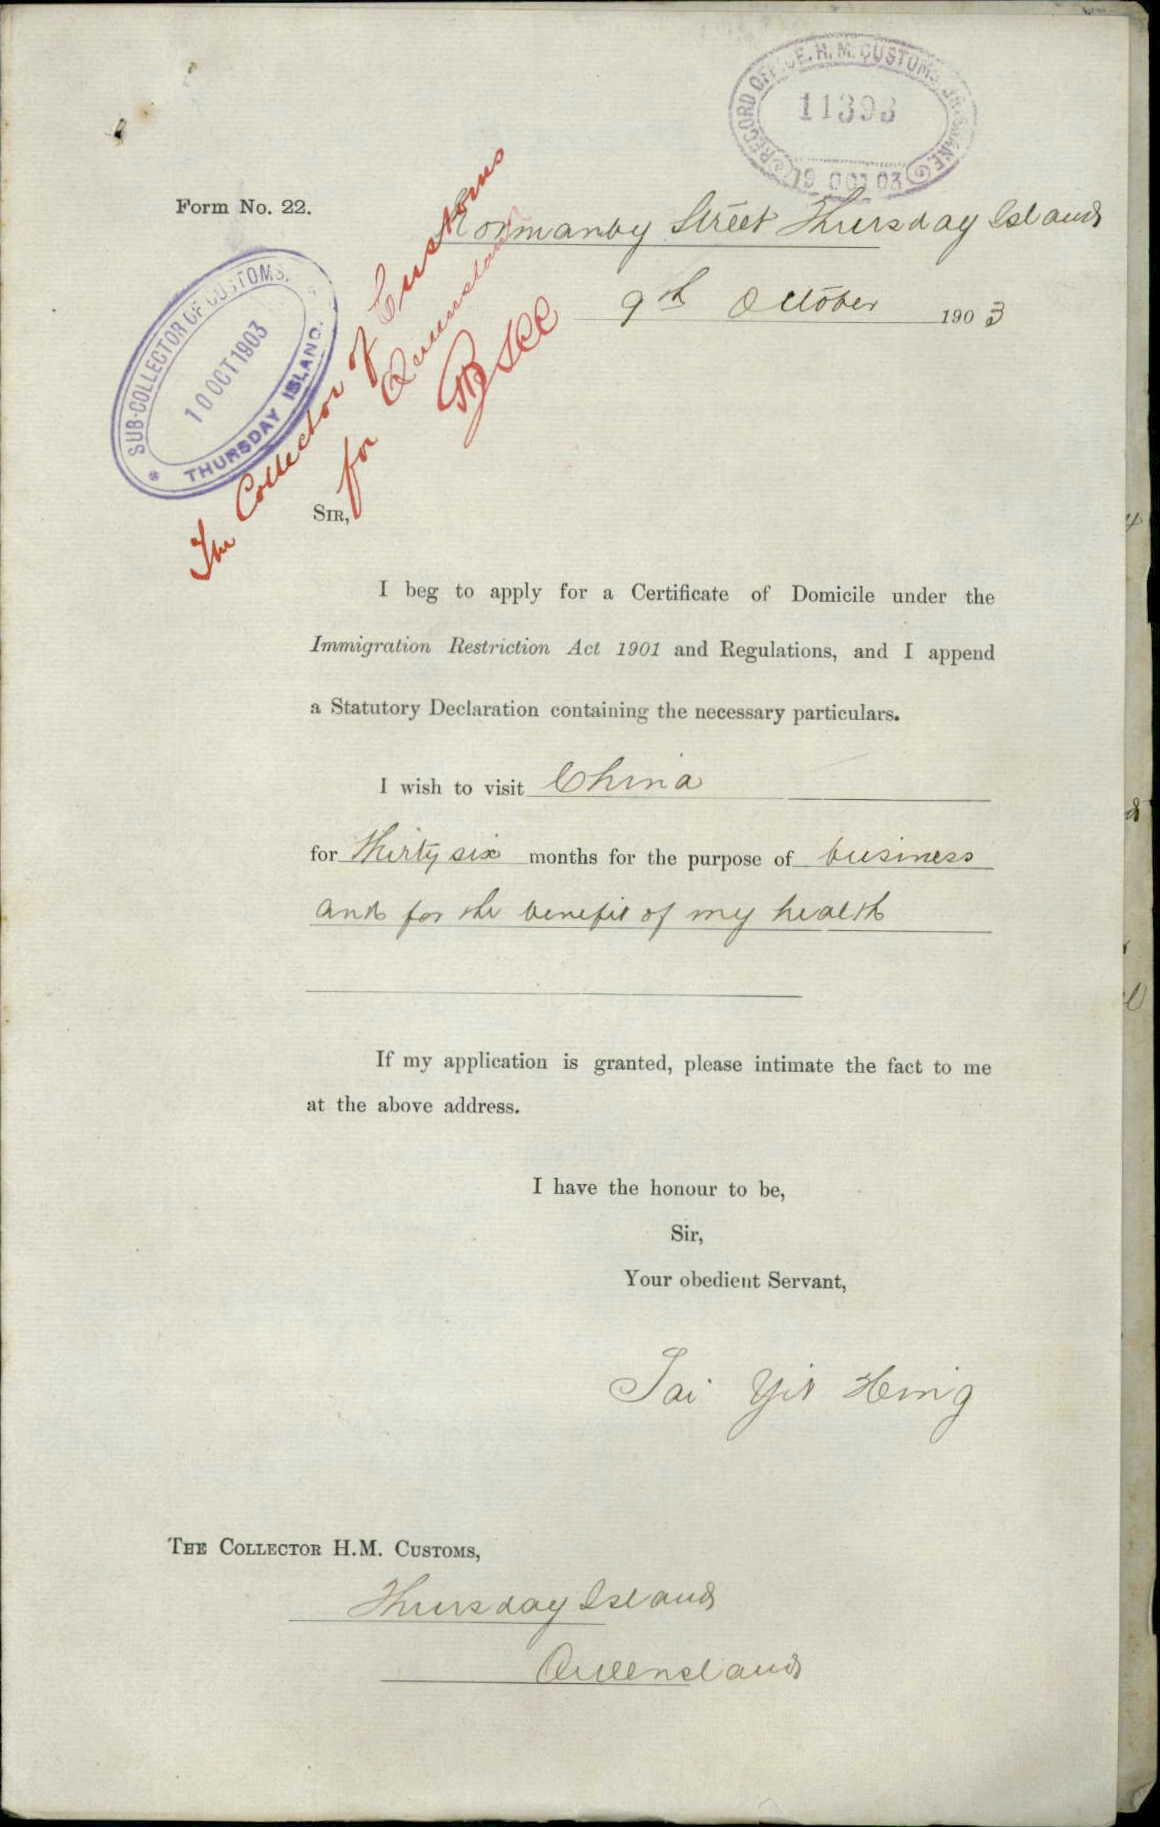 RECORD OFFICE. H. M. CUSTOMS, BRISBANE.
11393
19 OCT 03
Form No. 22.
Normanby Street Thursday Island
9th October 1903
SUB-COLLECTOR OF CUSTOMS.
10 OCT 1903
THURSDAY ISLAND.
The Collector of Customs
for Queensland
SIR,
I beg to apply for a Certificate of Domicile under the
Immigration Restriction Act 1901 and Regulations, and I append
a Statutory Declaration containing the necessary particulars.
I wish to visit China
for thirty six months for the purpose of business
and for the benefit of my health
If my application is granted, please intimate the fact to me
at the above address.
I have the honour to be,
Sir,
Your obedient Servant,
Tai Yit Hing
THE COLLECTOR H.M. CUSTOMS,
Thursday Island
Queensland